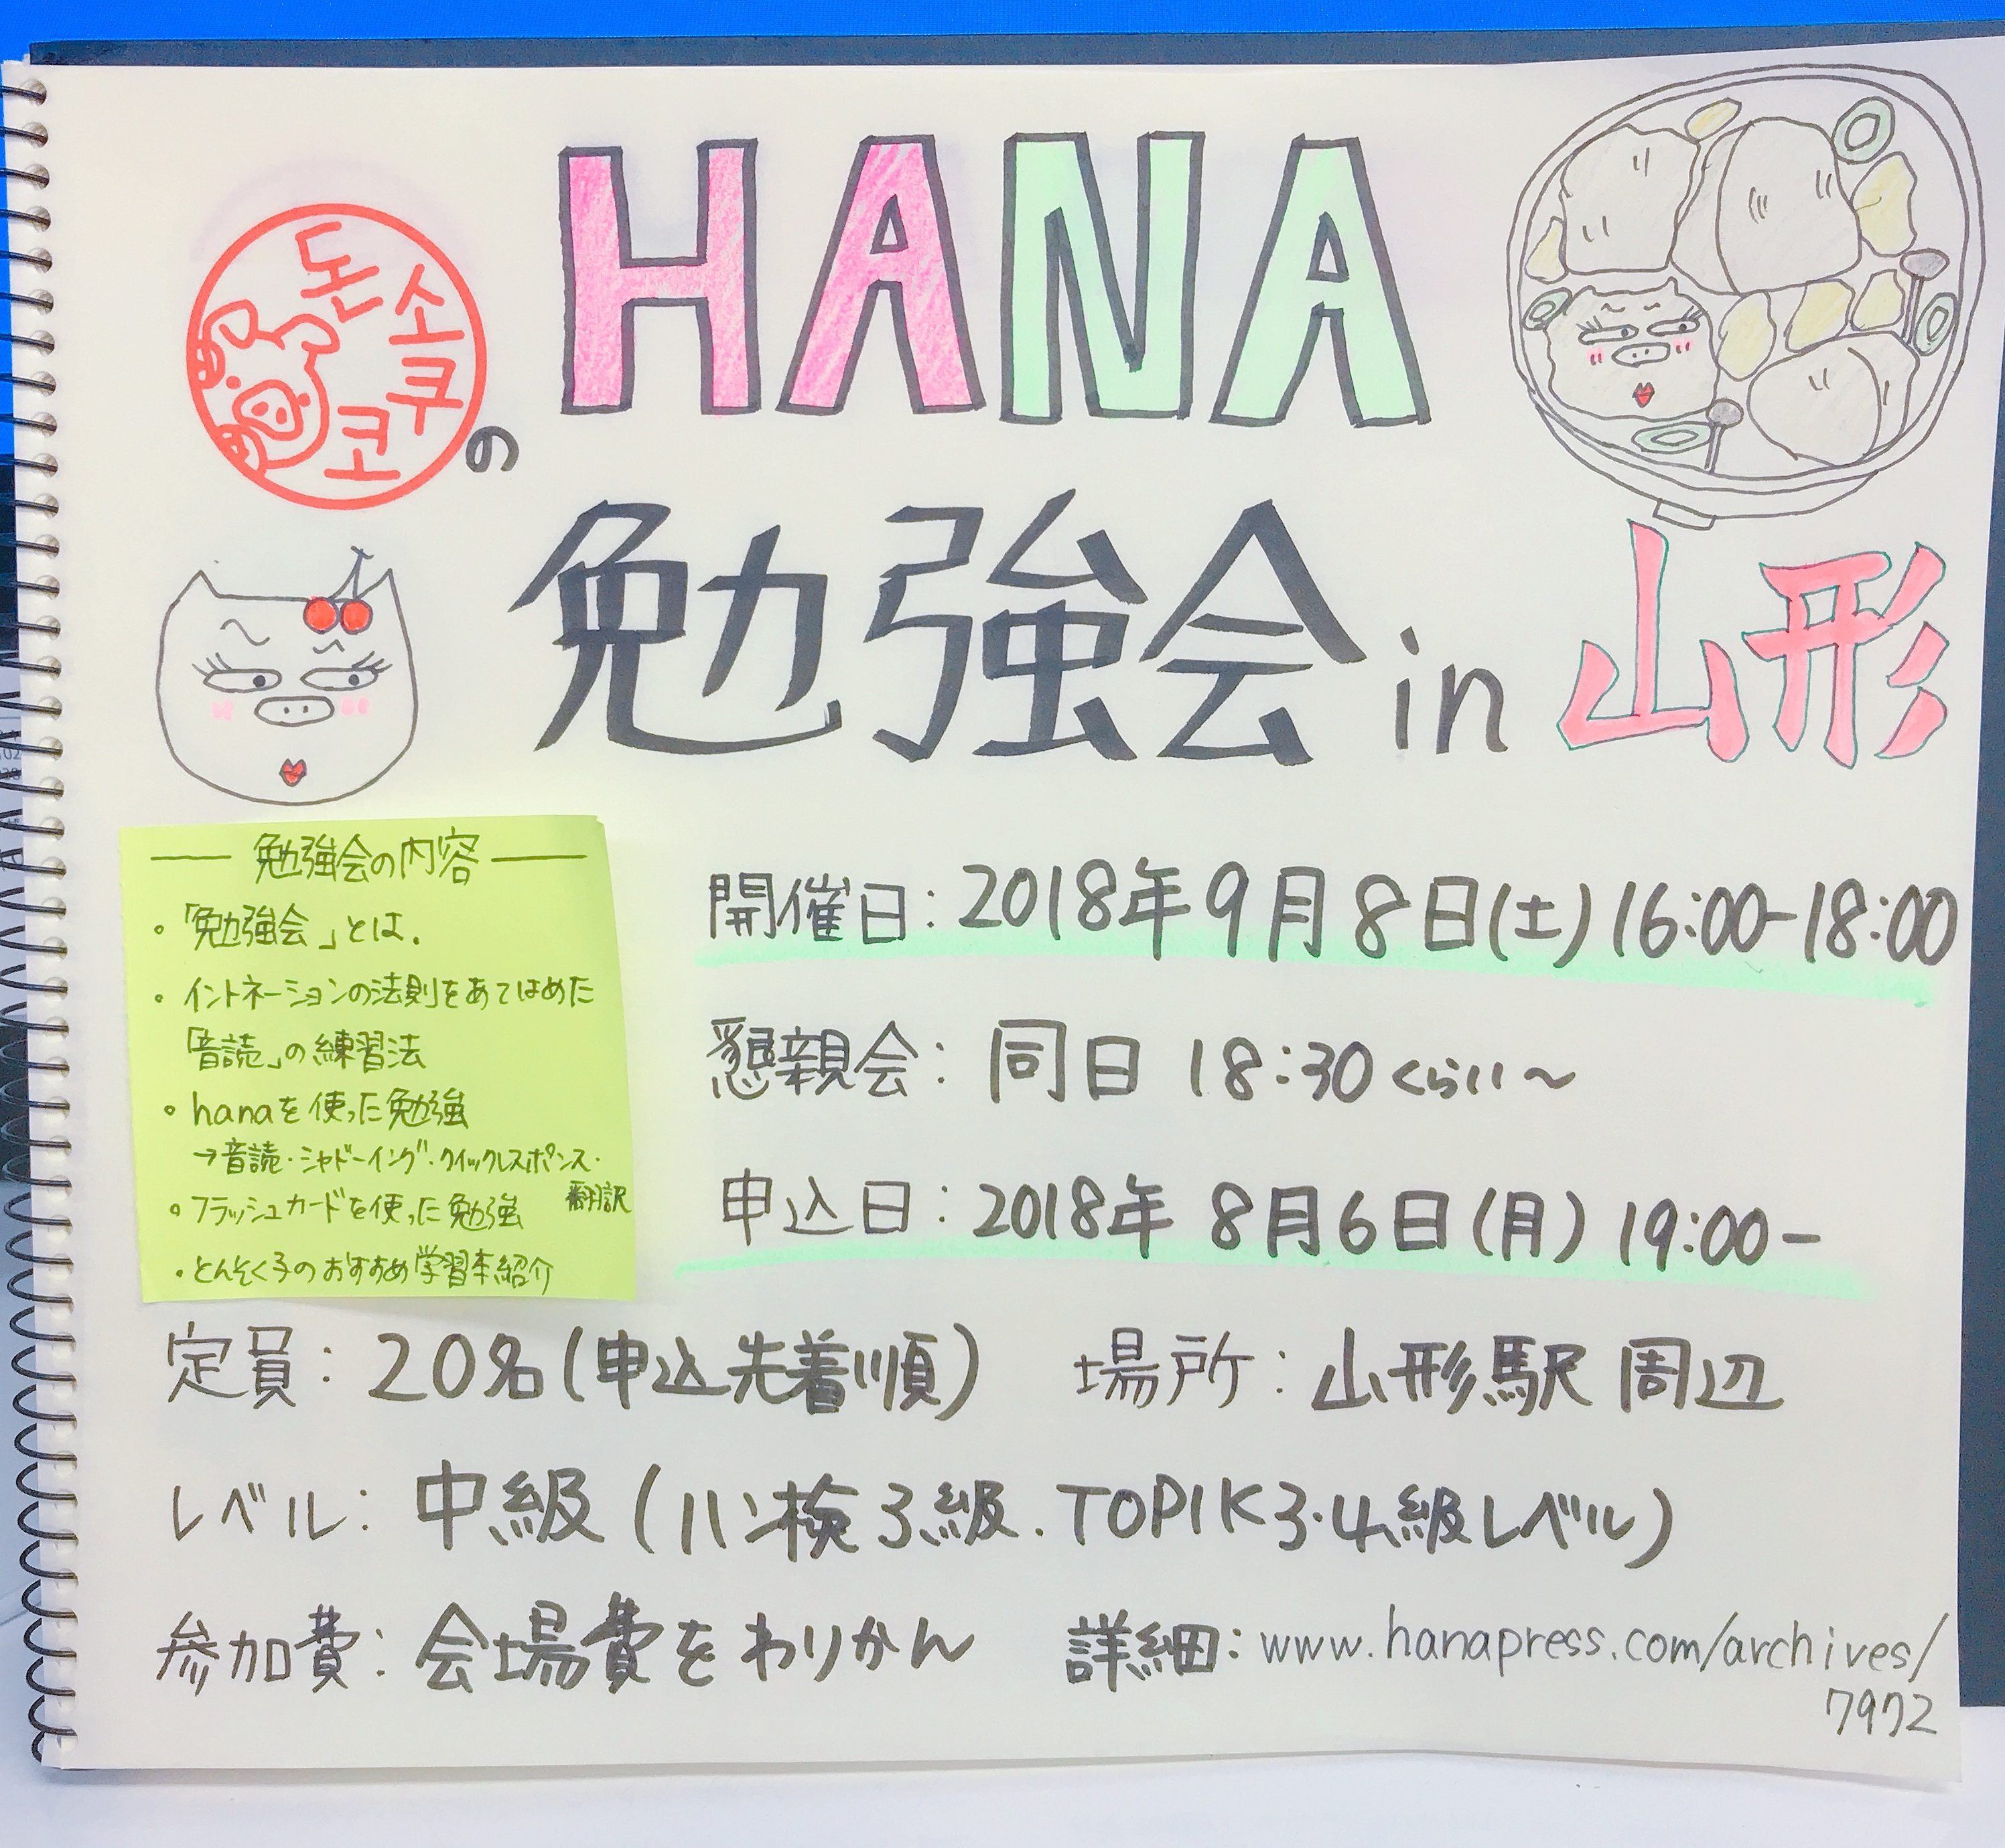 돈소쿠코
の
HANA
勉強会 in 山形
― 勉強会の内容 ―
・「勉強会」とは.
・イントネーションの法則をあてはめた
「音読」の練習法
・hanaを使った勉強
→音読・シャドーイング・クイックレスポンス・
翻訳
・フラッシュカードを使った勉強
・とんそく子のおすすめ学習本紹介
開催日:2018年9月8日(土)16:00-18:00
懇親会:同日 18:30くらい〜
申込日:2018年 8月6日(月) 19:00-
定員:20名(申込先着順)
場所:山形駅周辺
レベル:中級(ハン検3級.TOPIK3・4級レベル)
参加費:会場費をわりかん
詳細:www.hanapress.com/archives/
7972